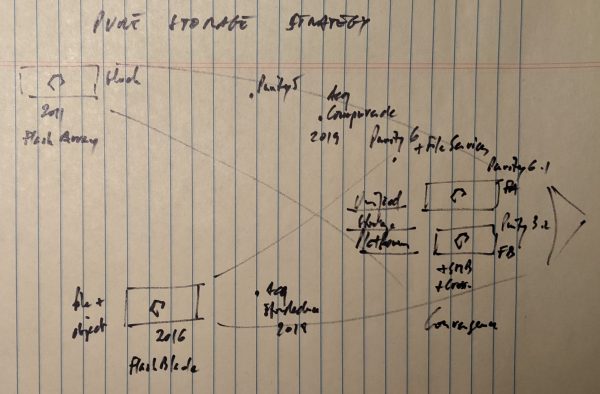 PURE STORAGE STRATEGY
block
2011
Flash Array
Purity 5
Acq
Compuverde
2019
Purity 6
+ File Services
Purity 6.1
FA
Unified
Storage
Platform
Purity 3.2
FB
+ SMB
Convergence
file +
object
2016
FlashBlade
Acq